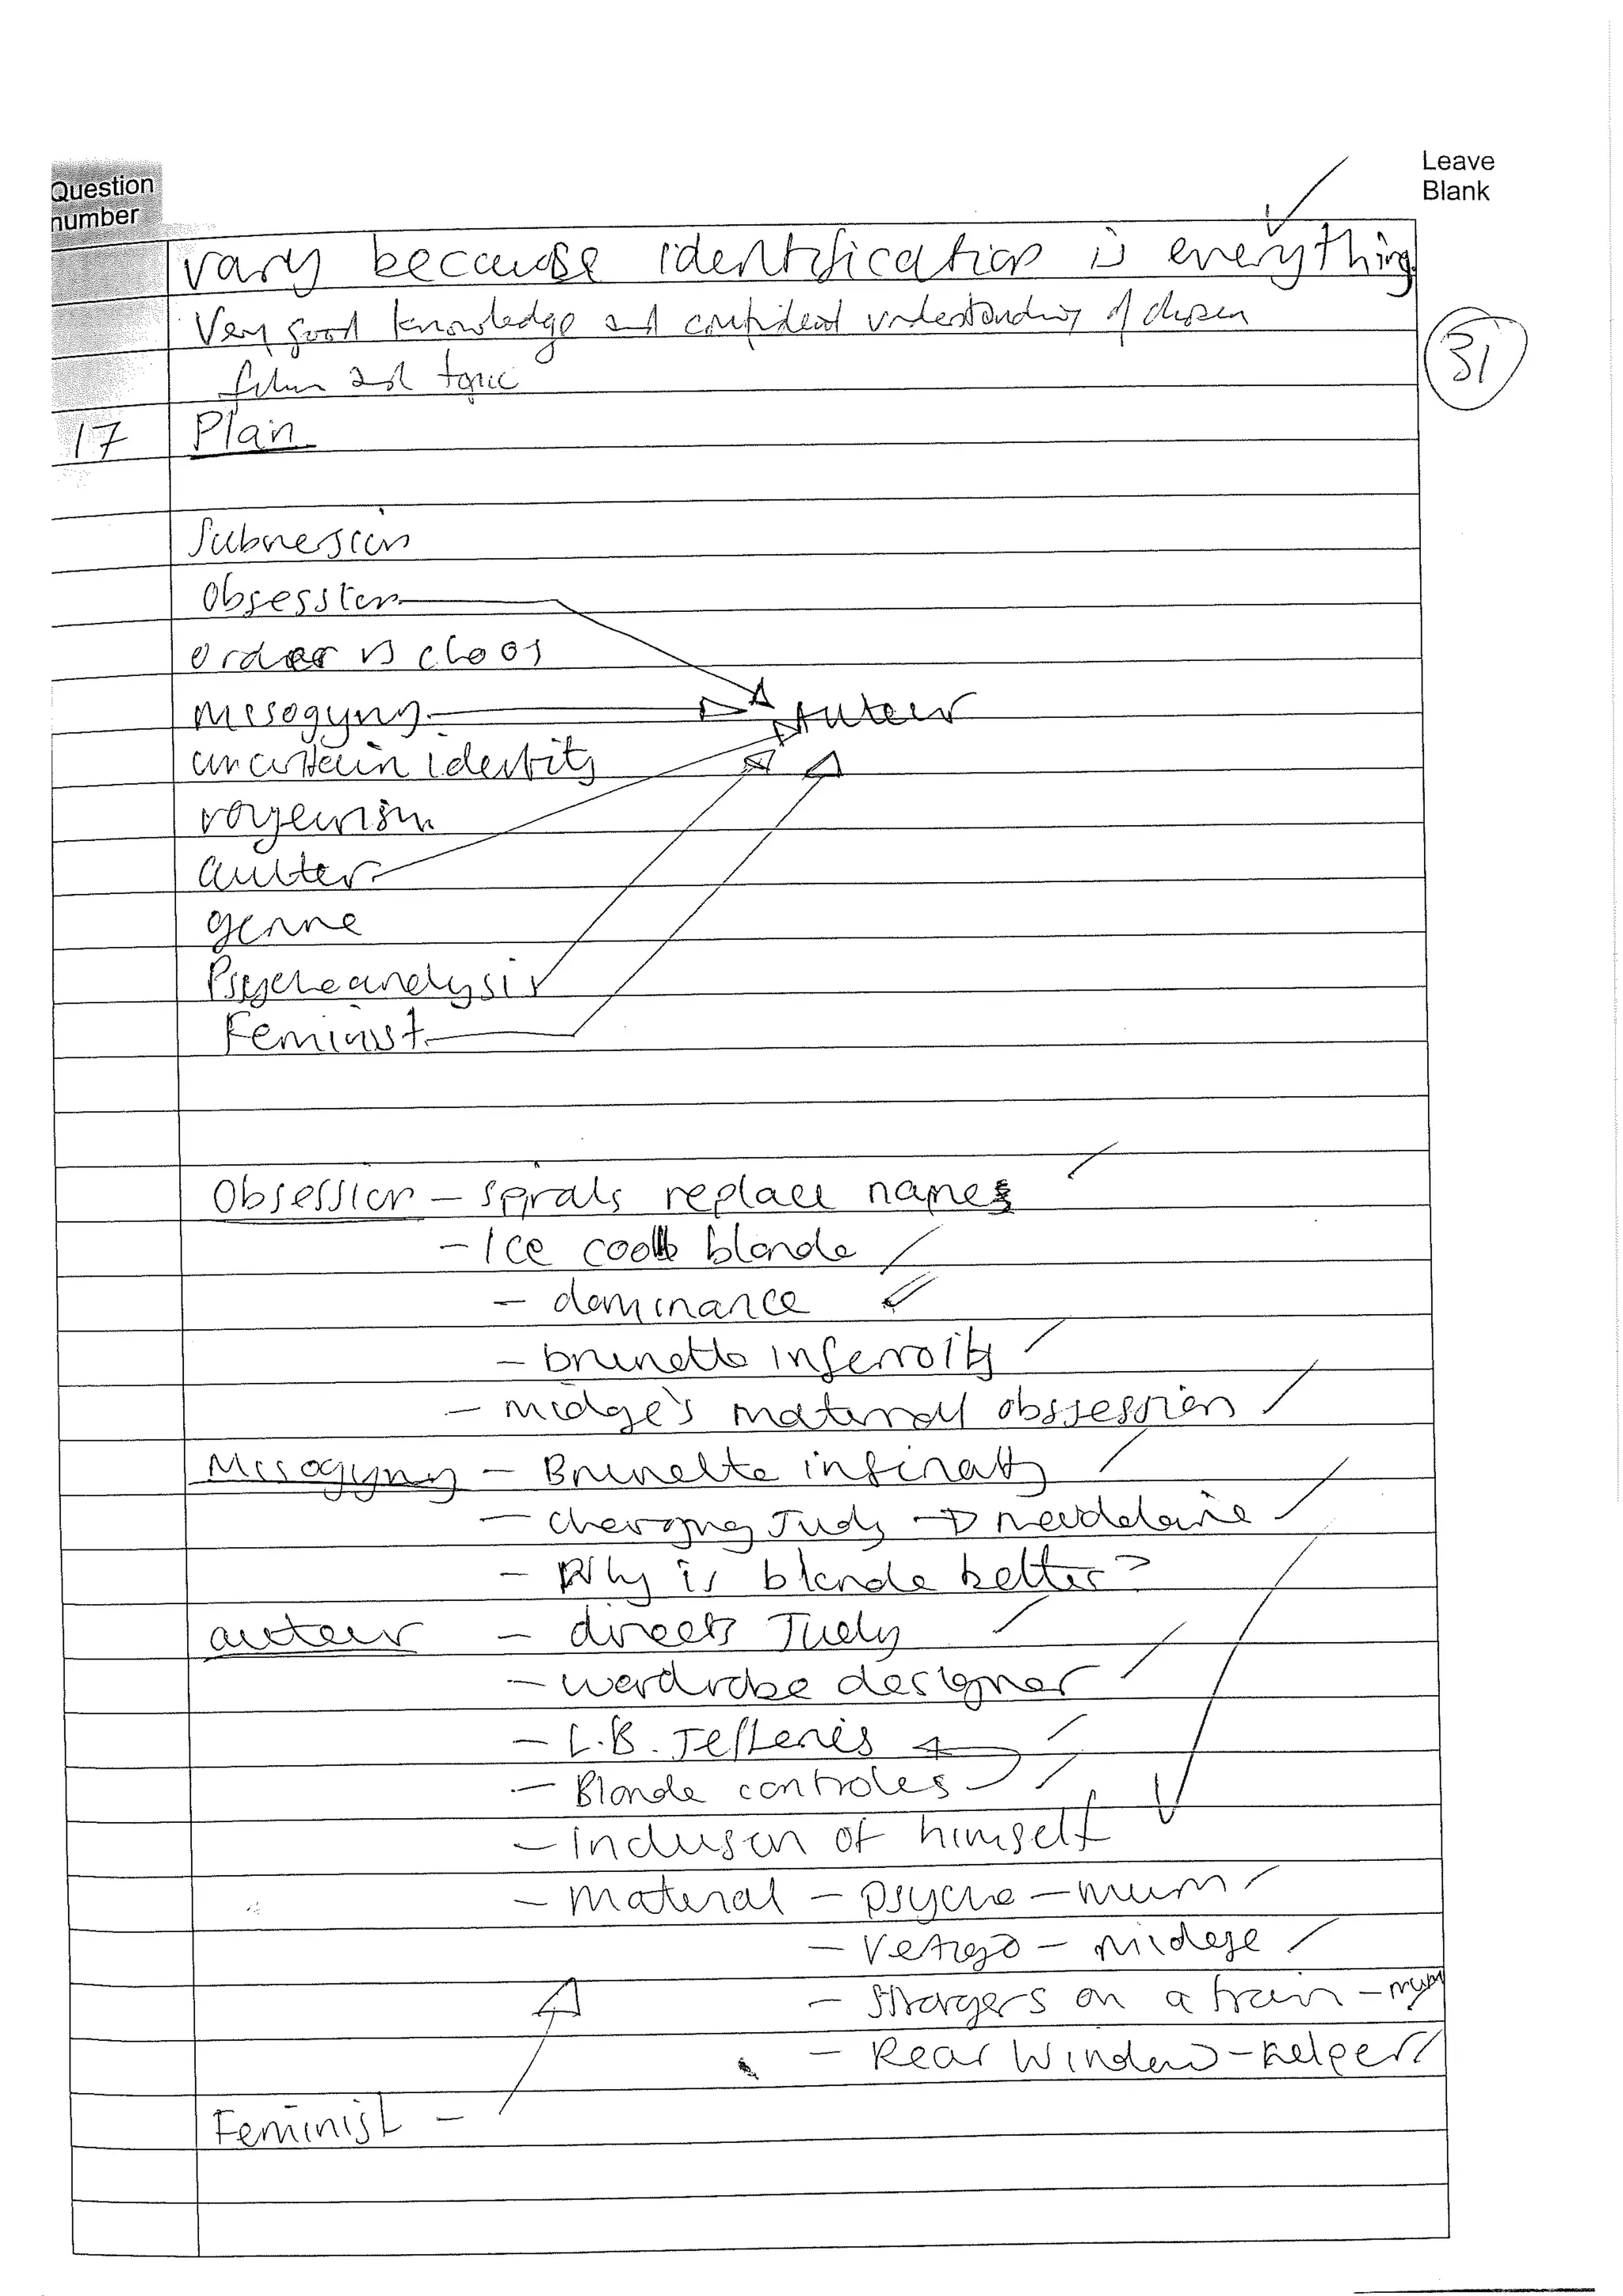 Leave
Blank
Question
number
vary because identification is everything.
Very good knowledge and confident understanding of chosen
film and topic
31
17 Plan
Subversion
Obsession
order vs chaos
misogyny Auteur
uncertain identity
voyeurism
auter
genre
Psychoanalysis
Feminist
Obsession - spirals replace names
- Ice cool blonde
- dominance
- brunette inferroity
- midge's maternal obssession
Misogyny - Brunette
- changing Judy → Maddelaine
- Why is blonde better?
auteur - directs Judy
- wardrobe designer
- L.B. Jefferies
- Blonde controles
- Inclusion of himself
- Maternal - psycho - mum
- Vertigo - Midge
- Strangers on a train - mum
- Rear Window - helper
Feminist -